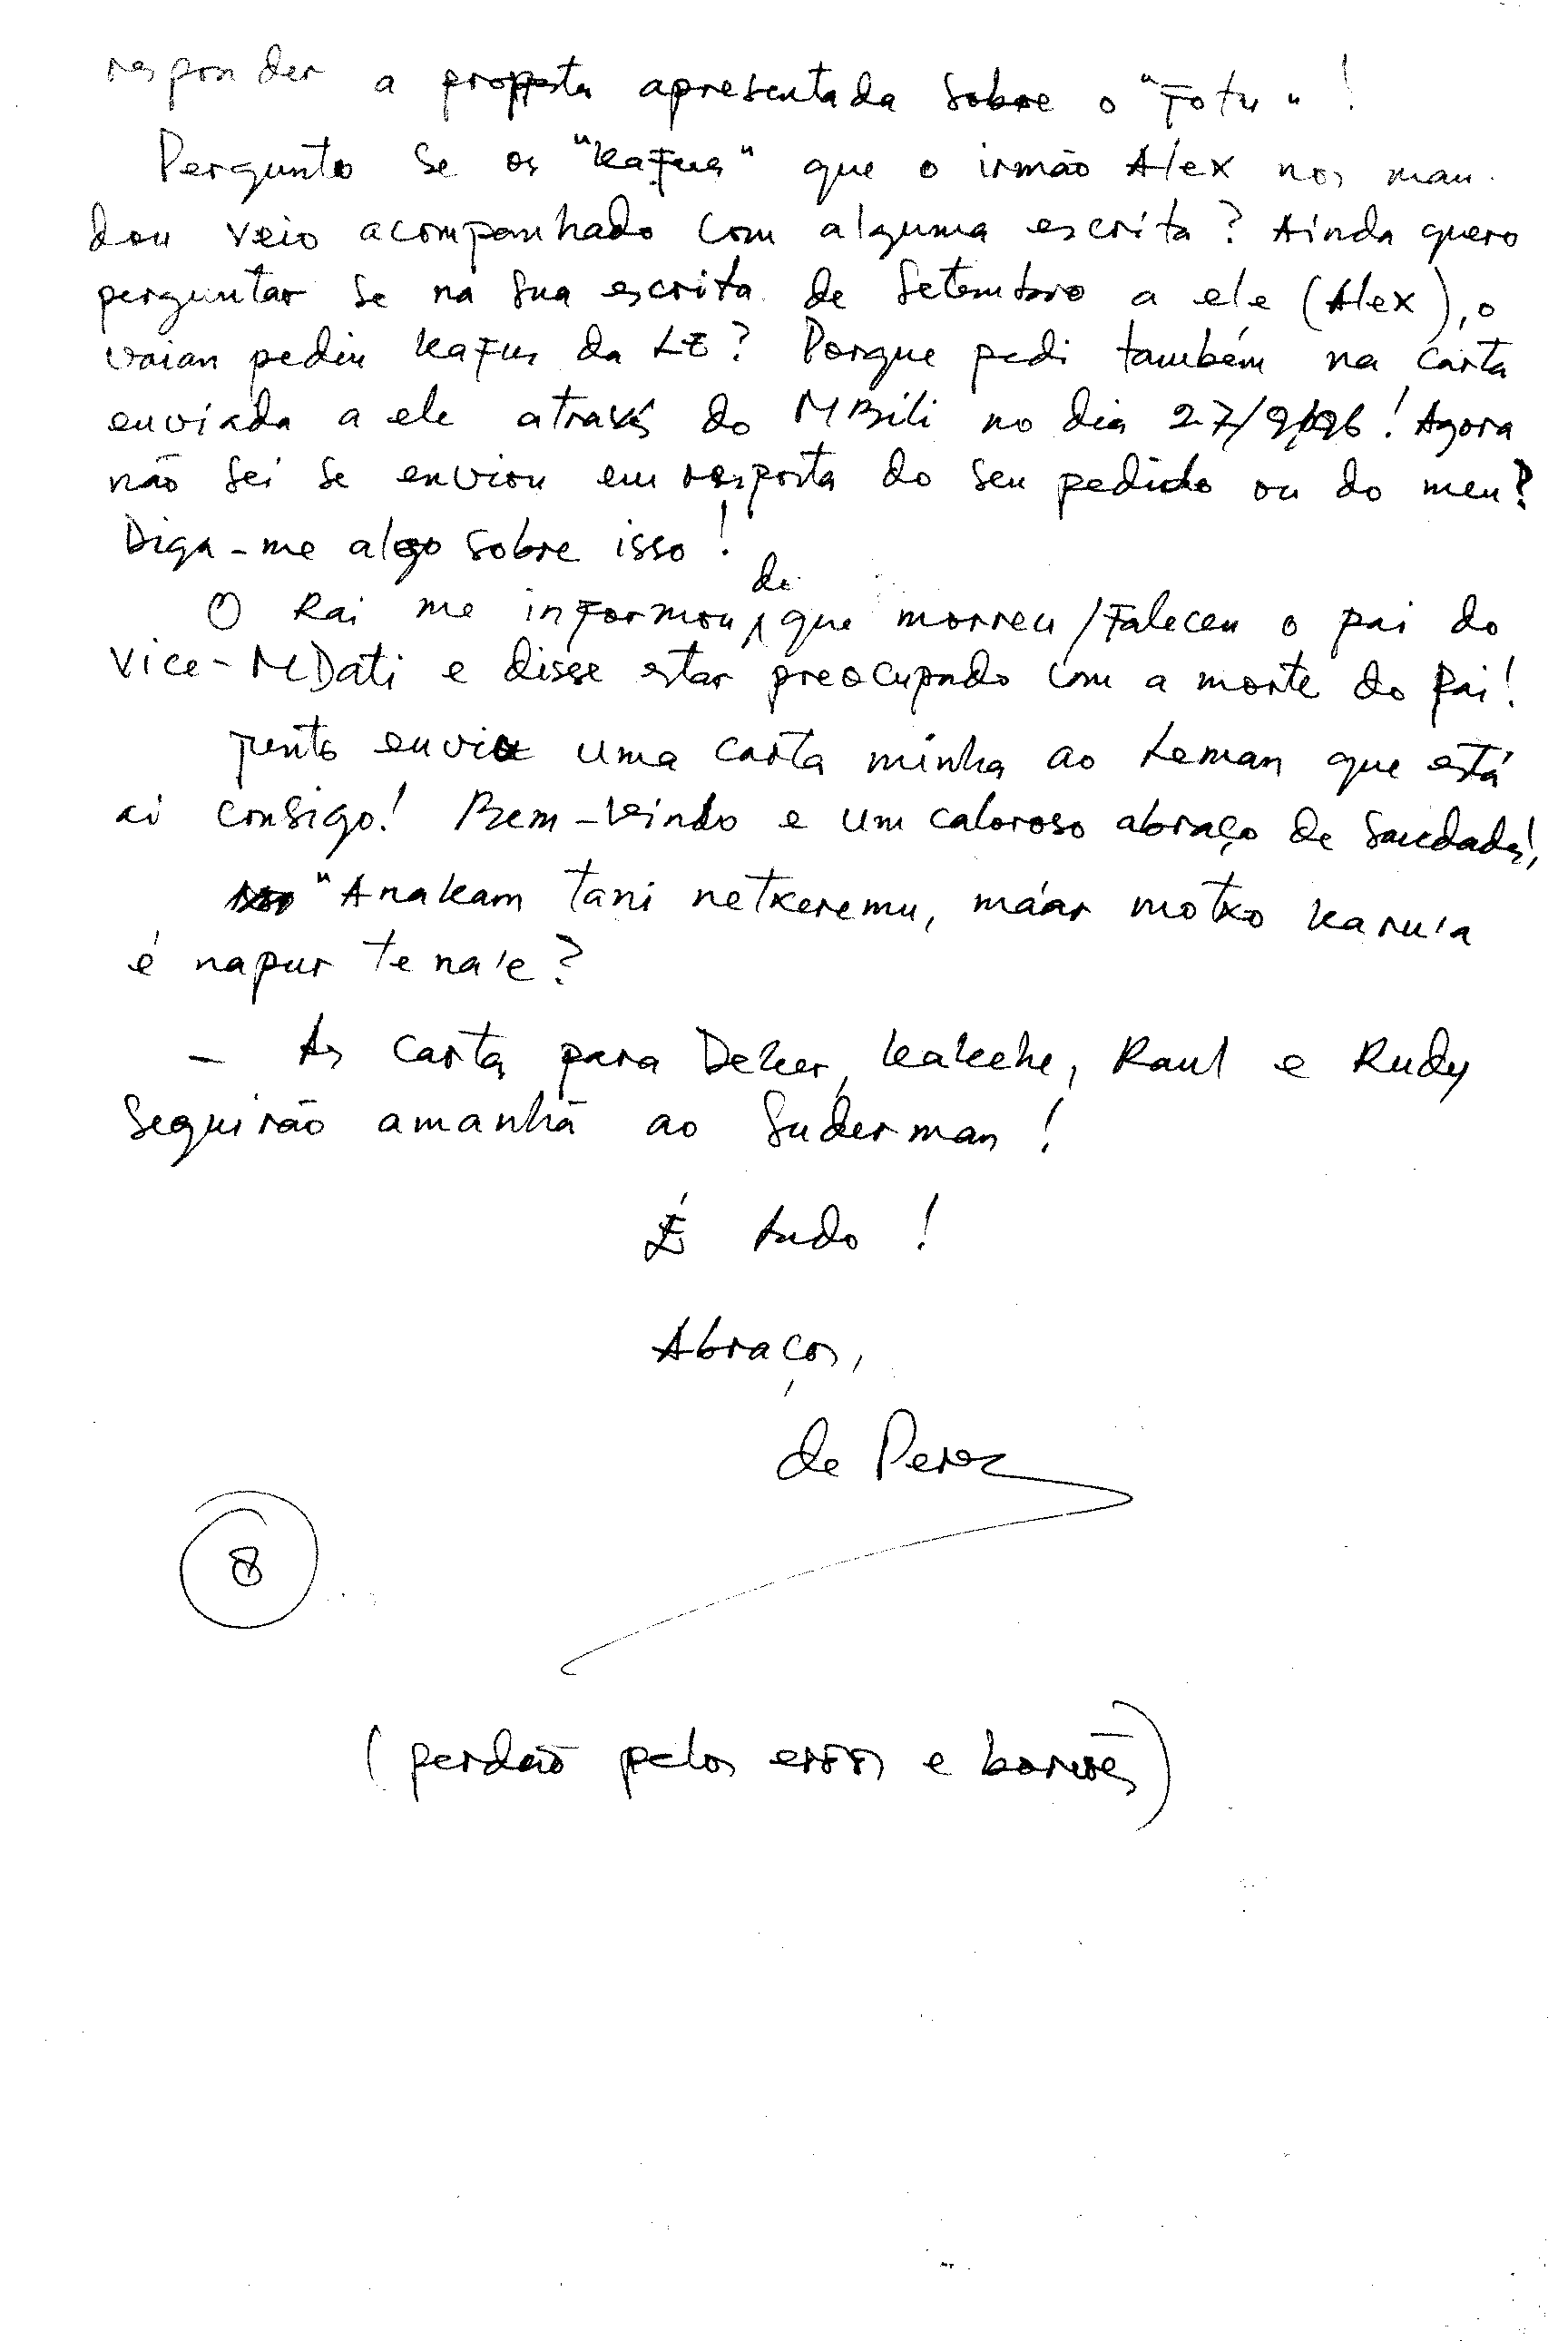 responder a proposta apresentada sobre o "Fotu"!
Pergunto se os "kafus" que o irmão Alex nos man-
dou veio acompanhado com alguma escrita? Ainda quero
perguntar se na sua escrita de Setembro a ele (Alex), o
vaian pediu kafus da LE? Porque pedi também na carta
enviada a ele através do MBili no dia 27/9/96! Agora
não sei se enviou em resposta do seu pedido ou do meu?
Diga-me algo sobre isso!
O Rai me informou de que morreu/faleceu o pai do
Vice-MDati e disse estar preocupado com a morte do pai!
Junto envio uma carta minha ao Leman que está
ai consigo! Bem-Veindo e um caloroso abraço de saudades!,
"Anakam tani netxeremu, máar motxo karu'a
é napur te na'e?
- As cartas para Deker, kakehe, Raul e Rudy
seguirão amanhã ao Suderman!
É tudo!
Abraços,
de Perez
8
(perdão pelos erros e borrões)